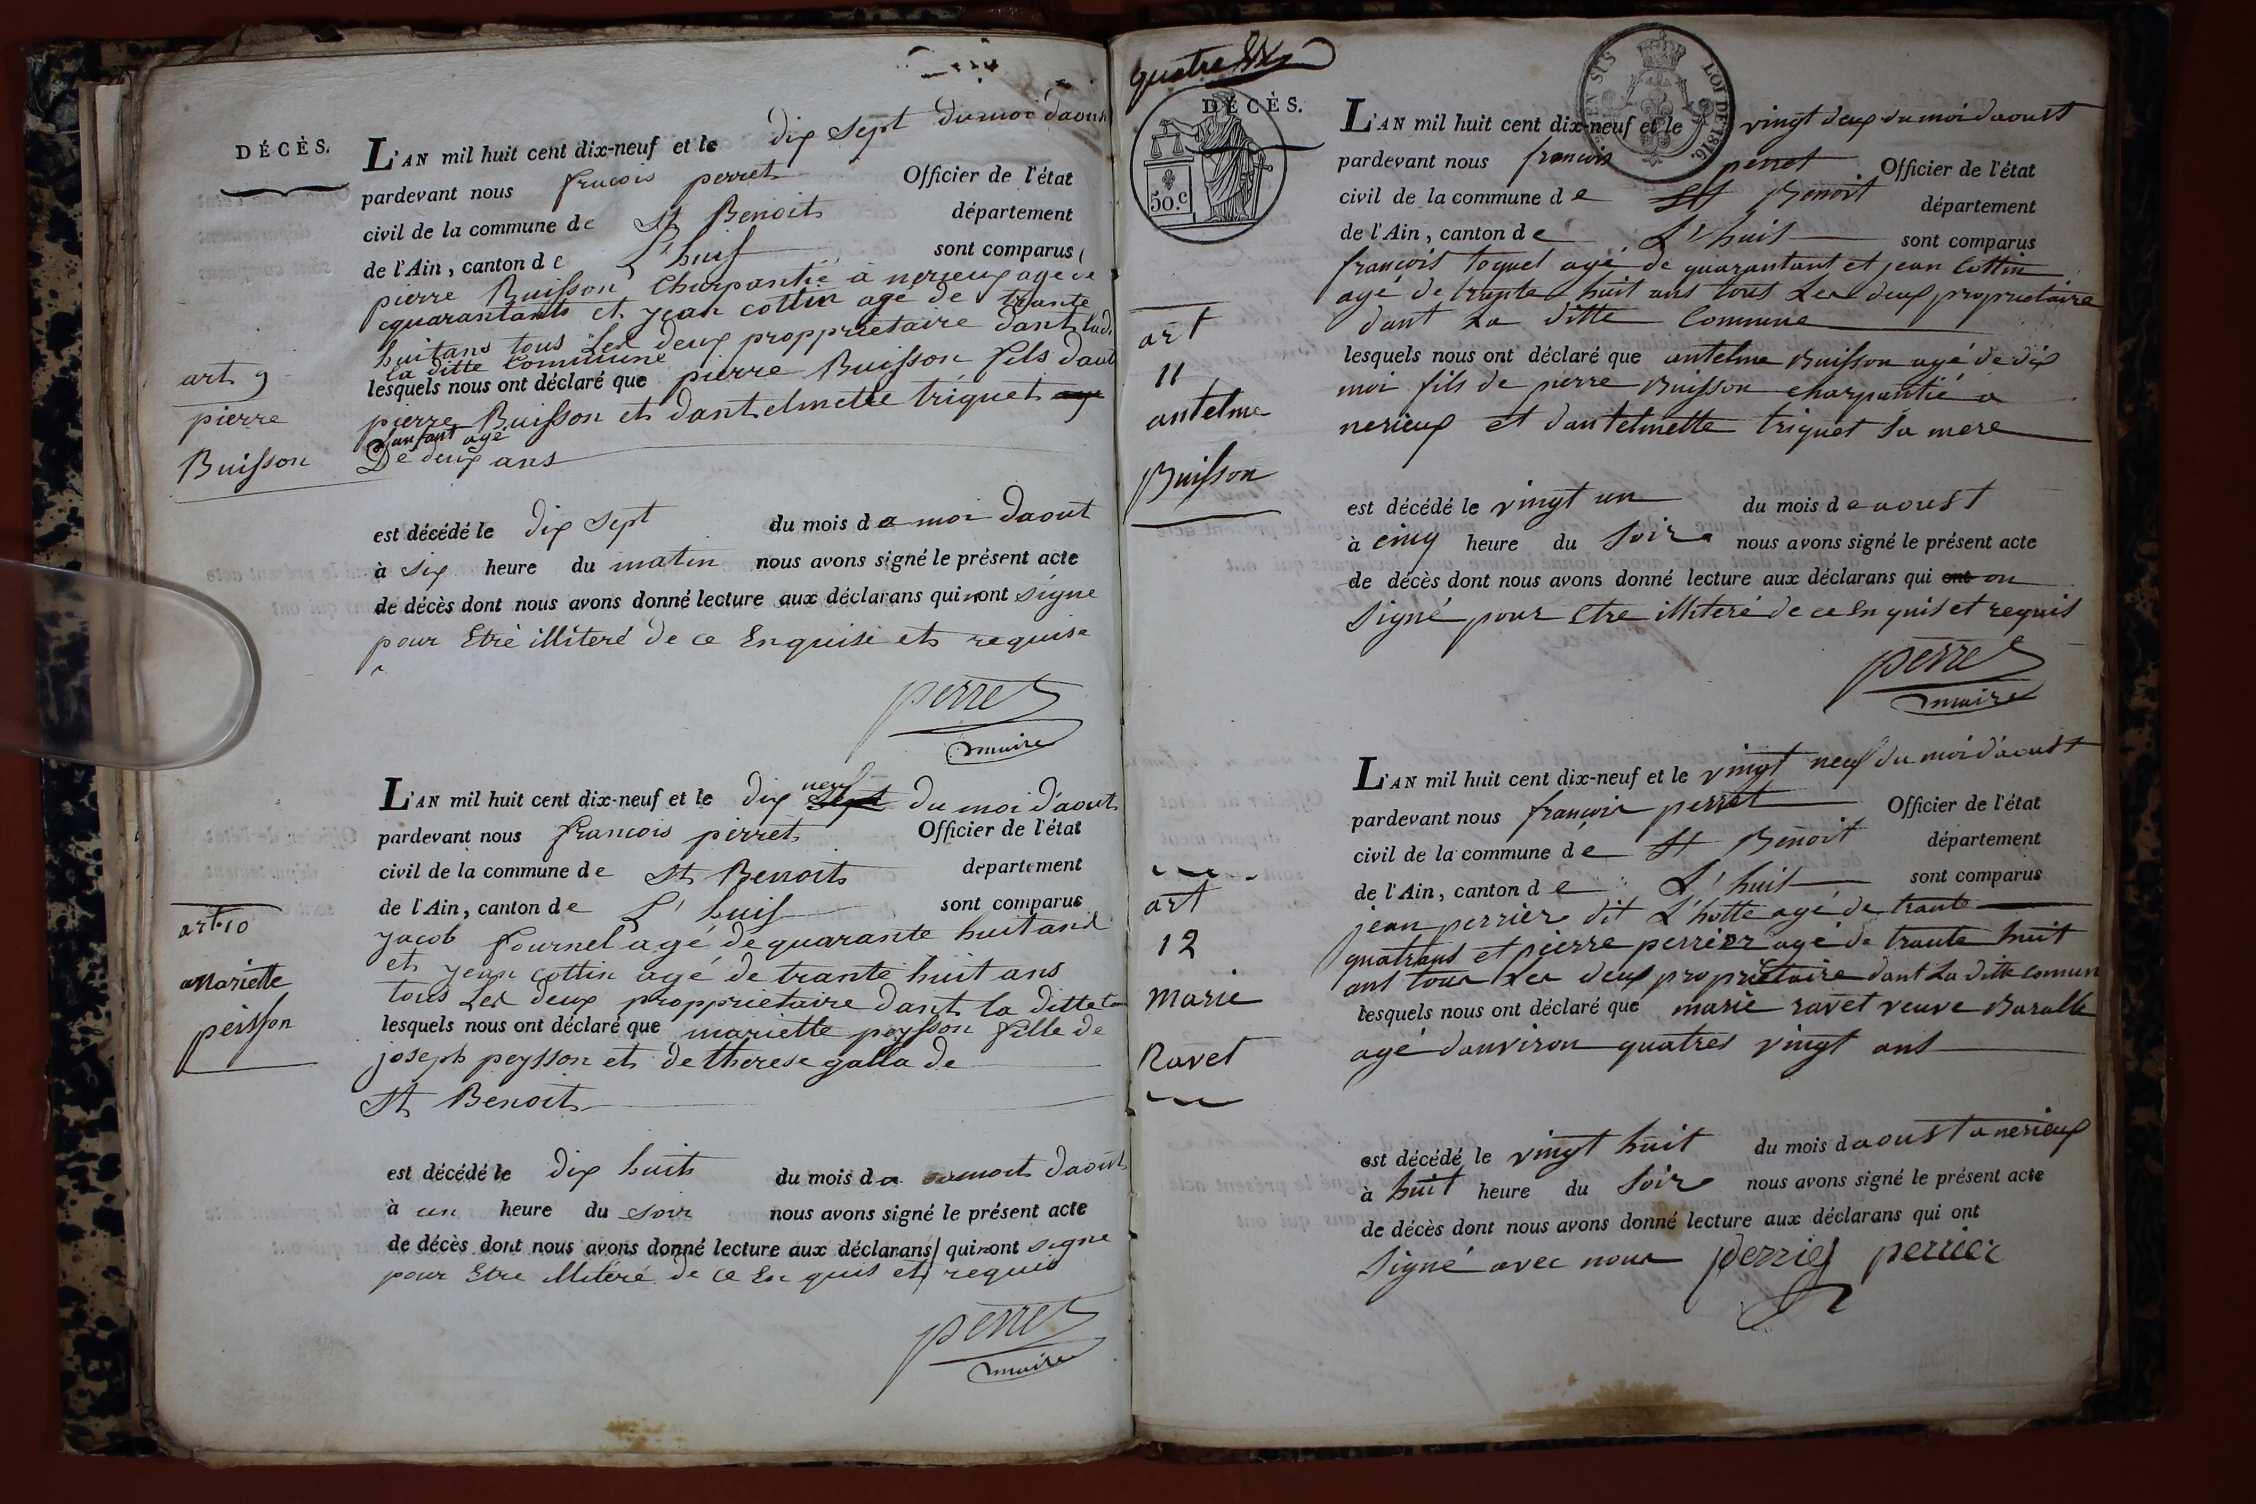 DÉCÈS.
L'AN mil huit cent dix-neuf et le dix sept du moi daoust
pardevant nous francois perret Officier de l'état
civil de la commune de St Benoit département
de l'Ain, canton de L'huis sont comparus
pierre Buisson Charpantié à nerieux agé de
quarantants et jean cottin agé de trante
huitans tous Les deux propprietaire dant lad.
la ditte Commune
art 9
lesquels nous ont déclaré que pierre Buisson fils daut
pierre
pierre Buisson et dantelmette triquet
anfant agé
Buisson
De deux ans
est décédé le dix sept du mois de moi Daout
à six heure du matin nous avons signé le présent acte
de décès dont nous avons donné lecture aux déclarans qui nont signe
pour Etre illiteré de ce Enquise et requise
perret
maire
L'AN mil huit cent dix-neuf et le dix sept neuf du moi d'aout
pardevant nous francois perret Officier de l'état
civil de la commune de St Benoit département
de l'Ain, canton de L'huis sont comparus
art. 10
jacob fournel agé de quarante huit ans
et jean cottin agé de trante huit ans
Mariette
tous Les deux propprietaire dant la ditte
peisson
lesquels nous ont déclaré que mariette peysson fille de
joseph peysson et de therese galla de
St Benoit
est décédé le dix huit du mois de moit daout
à un heure du soir nous avons signé le présent acte
de décès dont nous avons donné lecture aux déclarans qui nont signe
pour Etre illiteré de ce En quis et requis
perret
maire
quatre
DÉCÈS.
50.c
EN SUS LOI DE 1816.
L'AN mil huit cent dix-neuf et le vingt deux du moi daoust
pardevant nous francois perret Officier de l'état
civil de la commune de St Benoit département
de l'Ain, canton de L'huis sont comparus
françois toquet agé de quarantant et jean Cottin
agé de trante huit ans tous Les deux proprietaire
dant La ditte Commune
art
11
lesquels nous ont déclaré que antelme Buisson agé de dix
antelme
moi fils de pierre Buisson charpantié a
Buisson
nerieux et dantelmette triquet Sa mere
est décédé le vingt un du mois de aoust
à cinq heure du Soir nous avons signé le présent acte
de décès dont nous avons donné lecture aux déclarans qui ont on
Signé pour Etre illiteré de ce En quis et requis
perret
maire
L'AN mil huit cent dix-neuf et le vingt neuf du moi d'aoust
pardevant nous françois perret Officier de l'état
civil de la commune de St Benoit département
de l'Ain, canton de L'huis sont comparus
art
12
jean perrier dit L'hotte agé de trante
quatrans et pierre perrier agé de trante huit
ans tous Les deux proprietaire dant La ditte Comun
Marie
lesquels nous ont déclaré que marie ravet veuve Baralle
Ravet
agé danviron quatres vingt ans
est décédé le vingt huit du mois daoust a nerieux
à huit heure du Soir nous avons signé le présent acte
de décès dont nous avons donné lecture aux déclarans qui ont
Signé avec nous perrier perrier